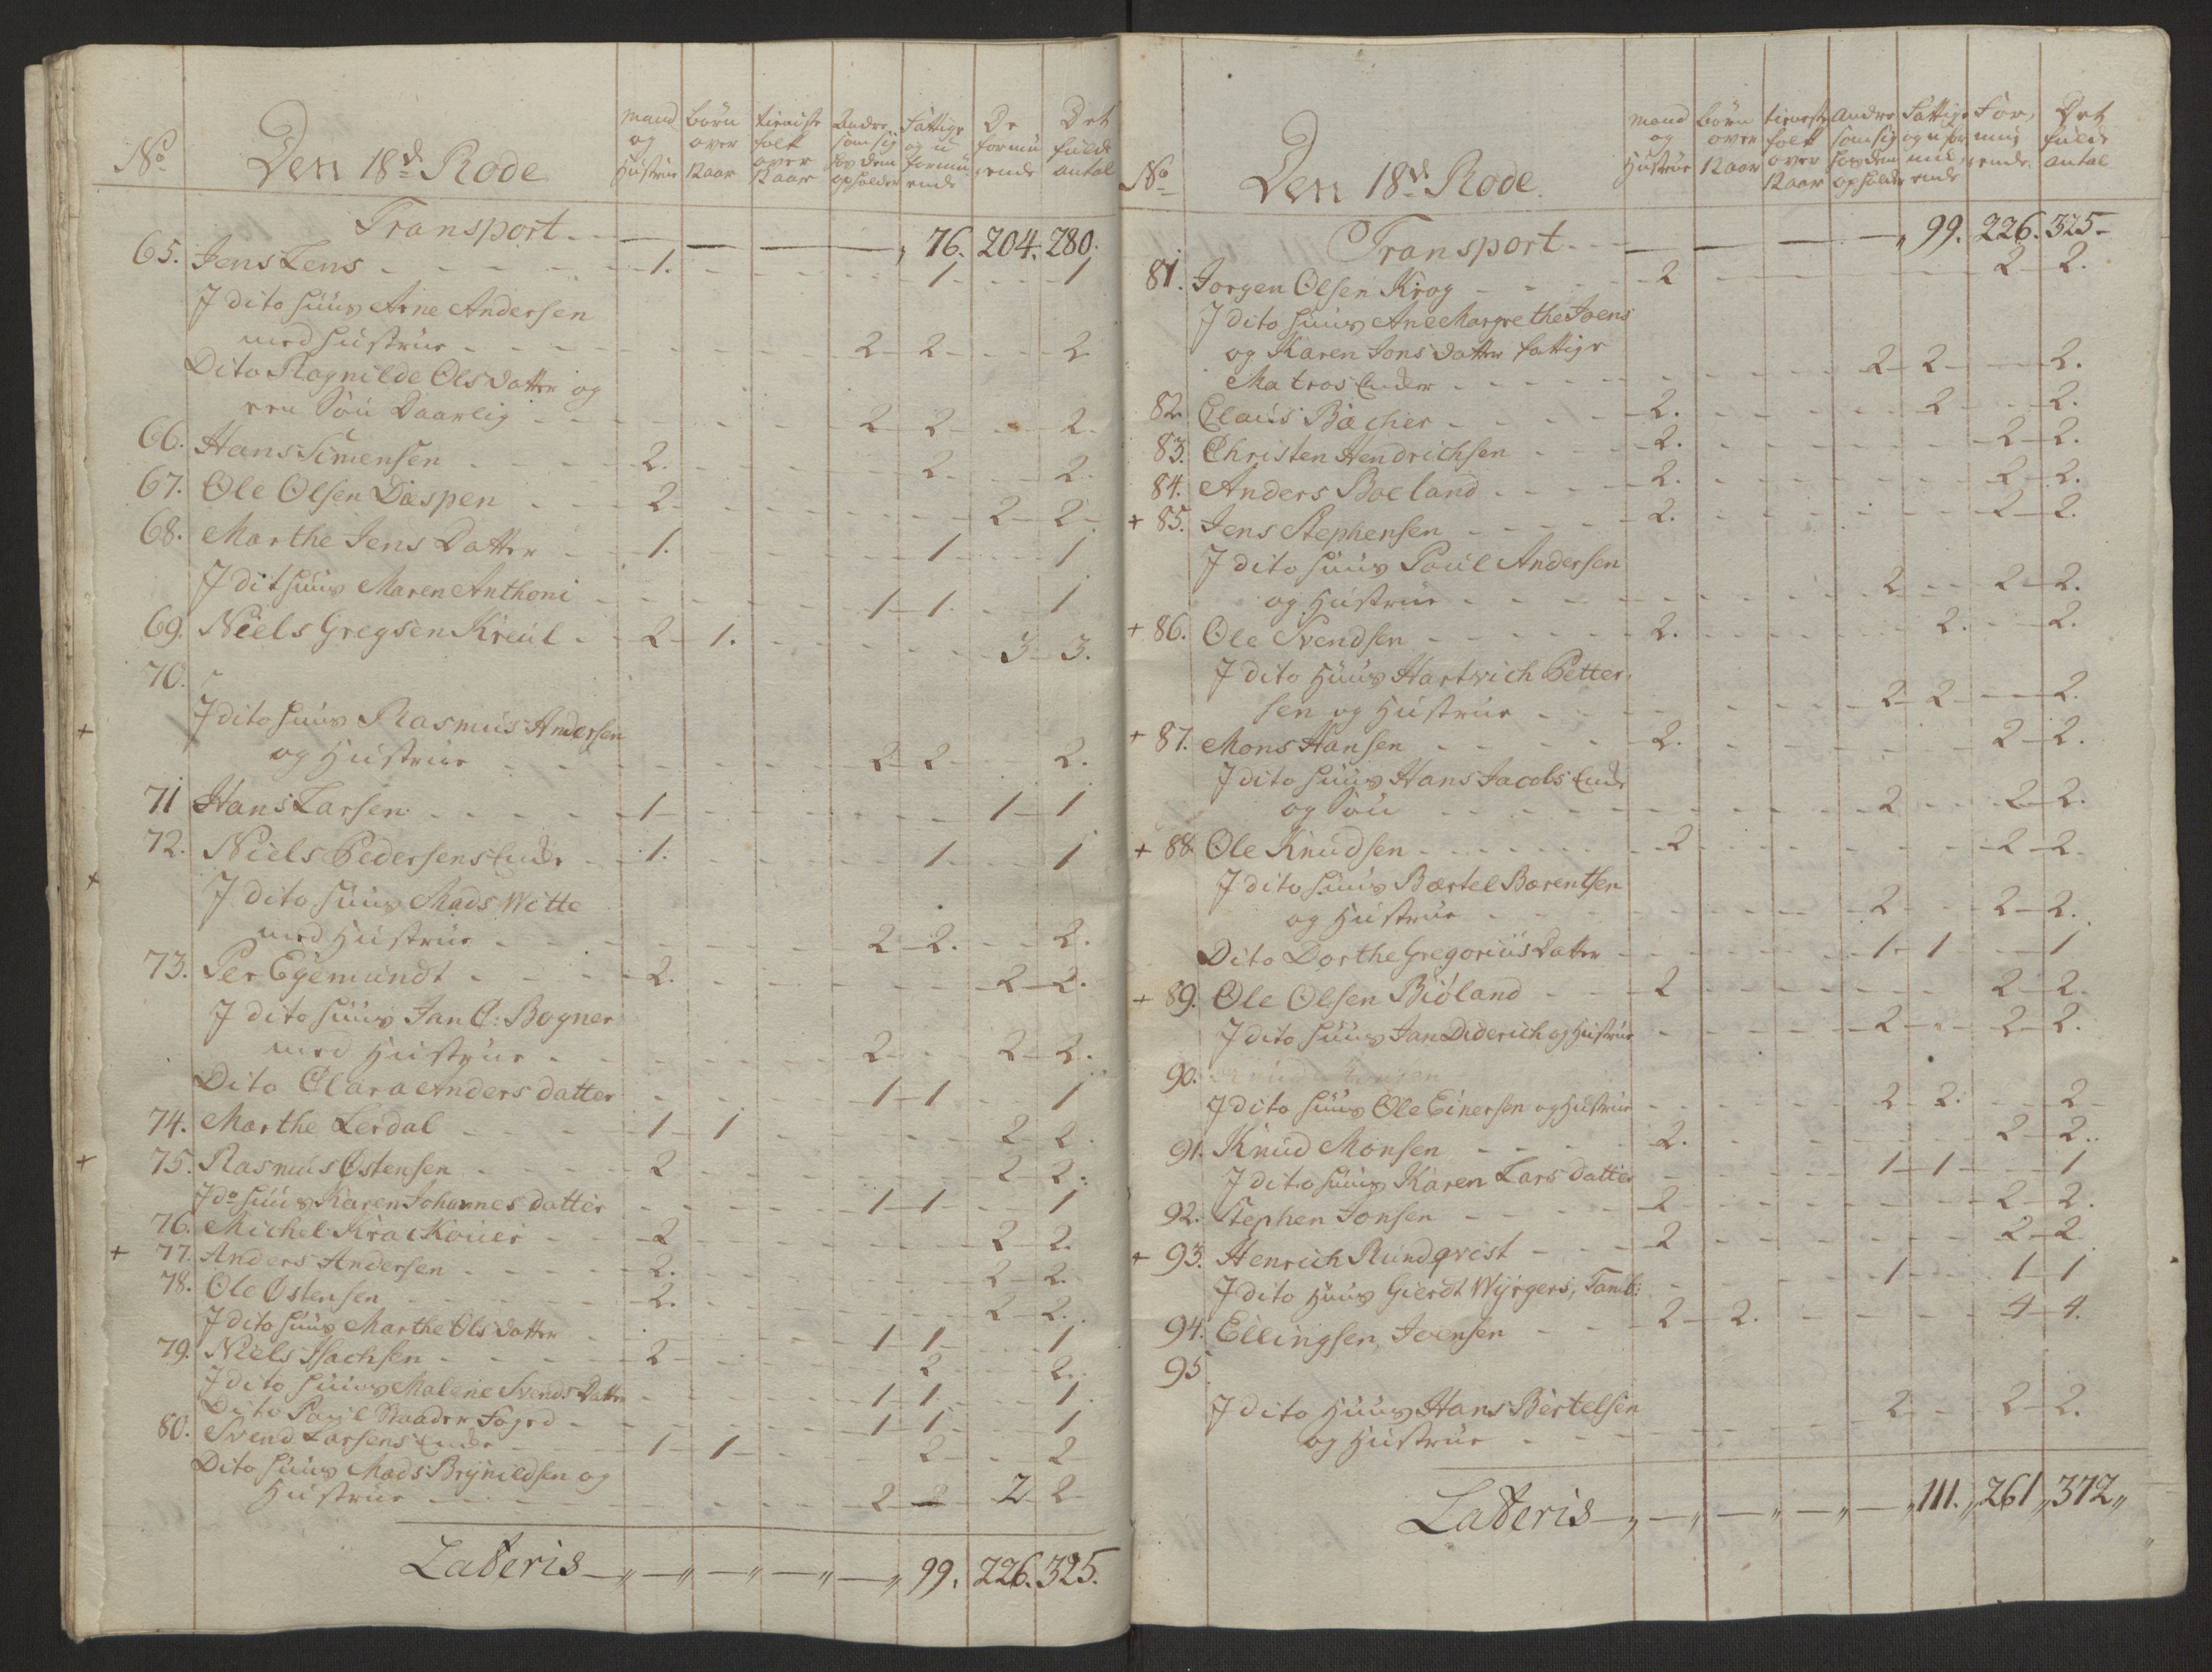 No Den 18d Rode
Mand og Hustrue
børn over 12 aar
tieniste folk over 12 aar
Andre som sig hos dem opholder
Fattige og u formuende
De formuende
Det fulde antal
Transport 76. 204. 280.
65. Jens Lens 1. 1 1
J dito huus Arne Andersen
med hustrue 2 2 2
Dito Ragnilde Olsdatter og
een Søn Daarlig 2 2 2
66. Hans Simensen 2. 2 2.
67. Ole Olsen Daspen 2 2 2
68. Marthe Jens Datter 1. 1 1
J dit huus Maren Anthoni 1 1 1
69. Niels Gregsen Kreul 2 1. 3 3.
70.
J dito huus Rasmus Andersen
og Hustrue 2 2 2.
71 Hans Larsen 1 1 1
72. Niels Pedersens Enke 1. 1 1
J dito huus Mads Witte
med Hustrue 2 2. 2.
73. Per Egemundt 2. 2 2.
J dito huus Jan C: Bogner
med Hustrue 2 2 2.
Dito Clara Anders datter 1 1 1
74. Marthe Lerdal 1 1 2 2.
+ 75. Rasmus Østensen 2 2 2.
J do huus Karen Johannes datter 1 1 1
76. Michel 2 2 2.
+ 77. Anders Andersen 2. 2 2.
78. Ole Østensen 2. 2 2.
J dito huus Marthe Ols datter 1 1 1
79. Niels Isachsen 2 2 2.
J dito huus Malene Svends Datter 1 1 1.
Dito Poul Foged 1 1 1
80. Svend Larsens Enke 1 1 2 2
Dito huus Mads Brynildsen og
Hustrue 2 2 2
Lateris 99. 226. 325.
No Den 18d Rode.
Mand og Hustrue
børn over 12 aar
tieneste folk over 12 aar
Andre som sig hos dem opholder
Fattige og u formuende
Formuende.
Det fulde antal
Transport 99. 226. 325
81. Jorgen Olsen Krog 2 2 2.
J dito huus Ane Margrethe Joens
og Karen Jons datter fattige
Matros Enker 2 2 2.
82. Claus Bacher 2. 2 2.
83. Christen Hendrichsen 2. 2 2.
84. Anders Boeland 2. 2 2.
+ 85. Jens Stephensen 2. 2 2.
J dito huus Poul Andersen
og Hustrue 2 2 2.
+ 86. Ole Svendsen 2. 2. 2.
J dito Huus Hartvich Petter
sen og Hustrue 2 2 2.
+ 87. Mons Hansen 2. 2 2.
J dito huus Hans Jacobs Enke
og Søn 2 2 2.
+ 88. Ole Knudsen 2 2 2.
J dito huus Bærtel Bærentsen
og Hustrue 2 2 2.
Dito Dorthe Gregorius Datter 1 1 1
+ 89. Ole Olsen Biøland 2 2 2.
J dito huus Jan Diderich og Hustrue 2 2 2.
90.
J dito huus Ole Einersen og Hustrue 2 2. 2
91. Knud Monsen 2. 2 2.
J dito huus Karen Lars datter 1 1 1
92. Stephen Jonsen 2 2 2.
+ 93. Henrich Rundqvist 2 2 2
J dito Huus Gierdt Wyrgers, Tamb: 1 1 1
94. Ellingsen, Joensen 2 2. 4 4.
95
J dito Huus Hans Bertelsen
og Hustrue 2 2 2.
Lateris 111. 261 372